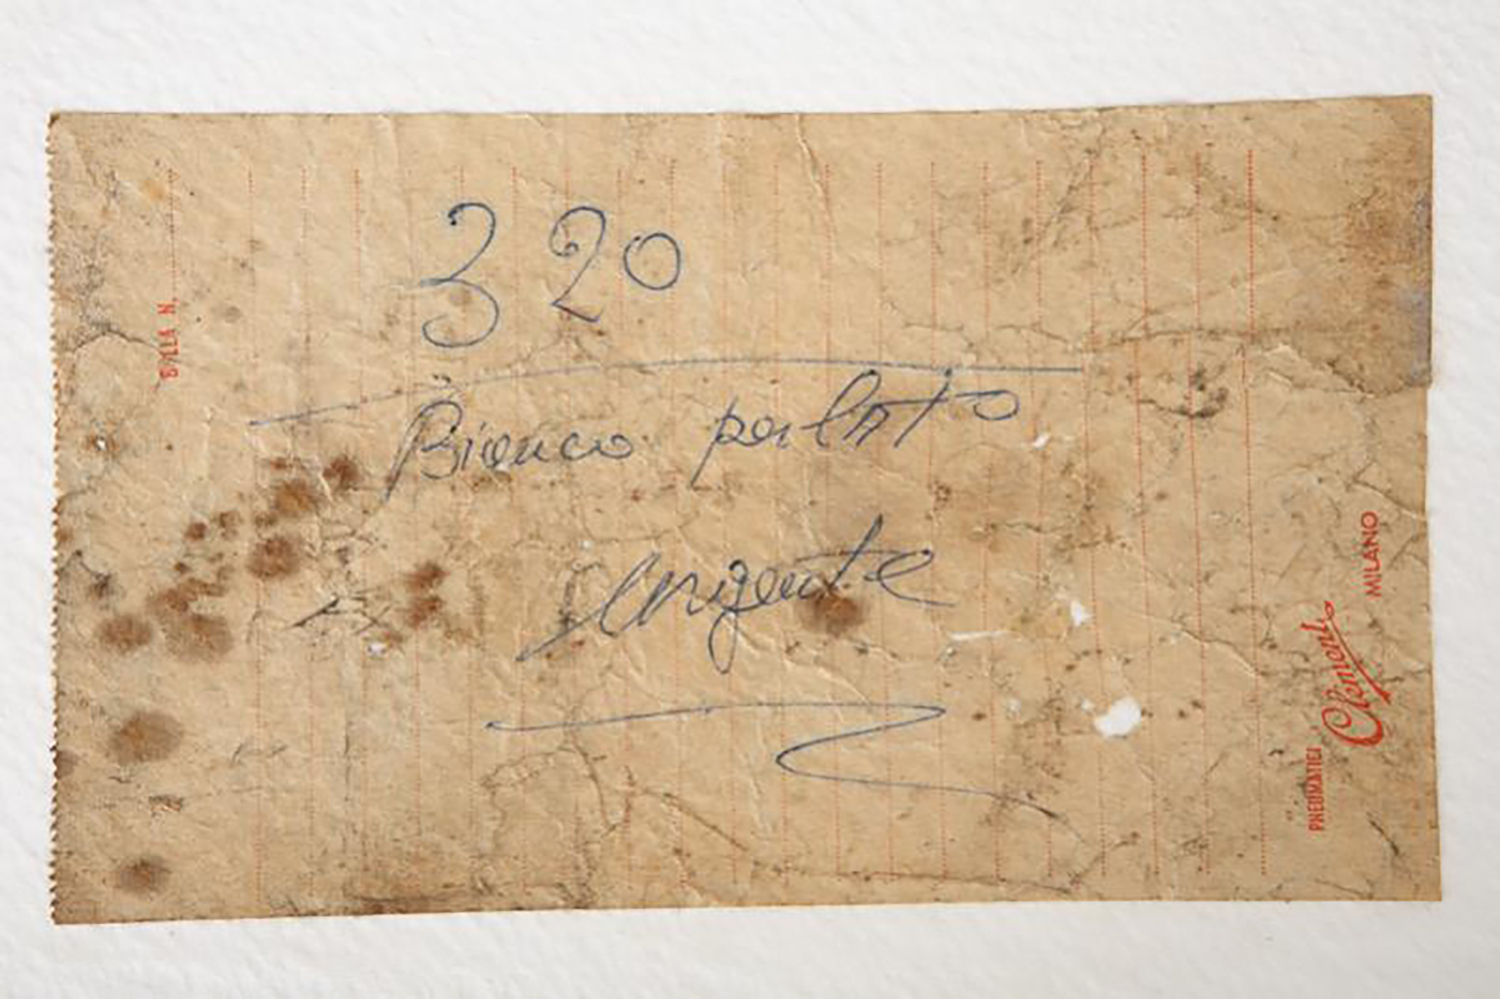 320
Bianco perlato
Urgente
BOLLA N.
PNEUMATICI Clément MILANO